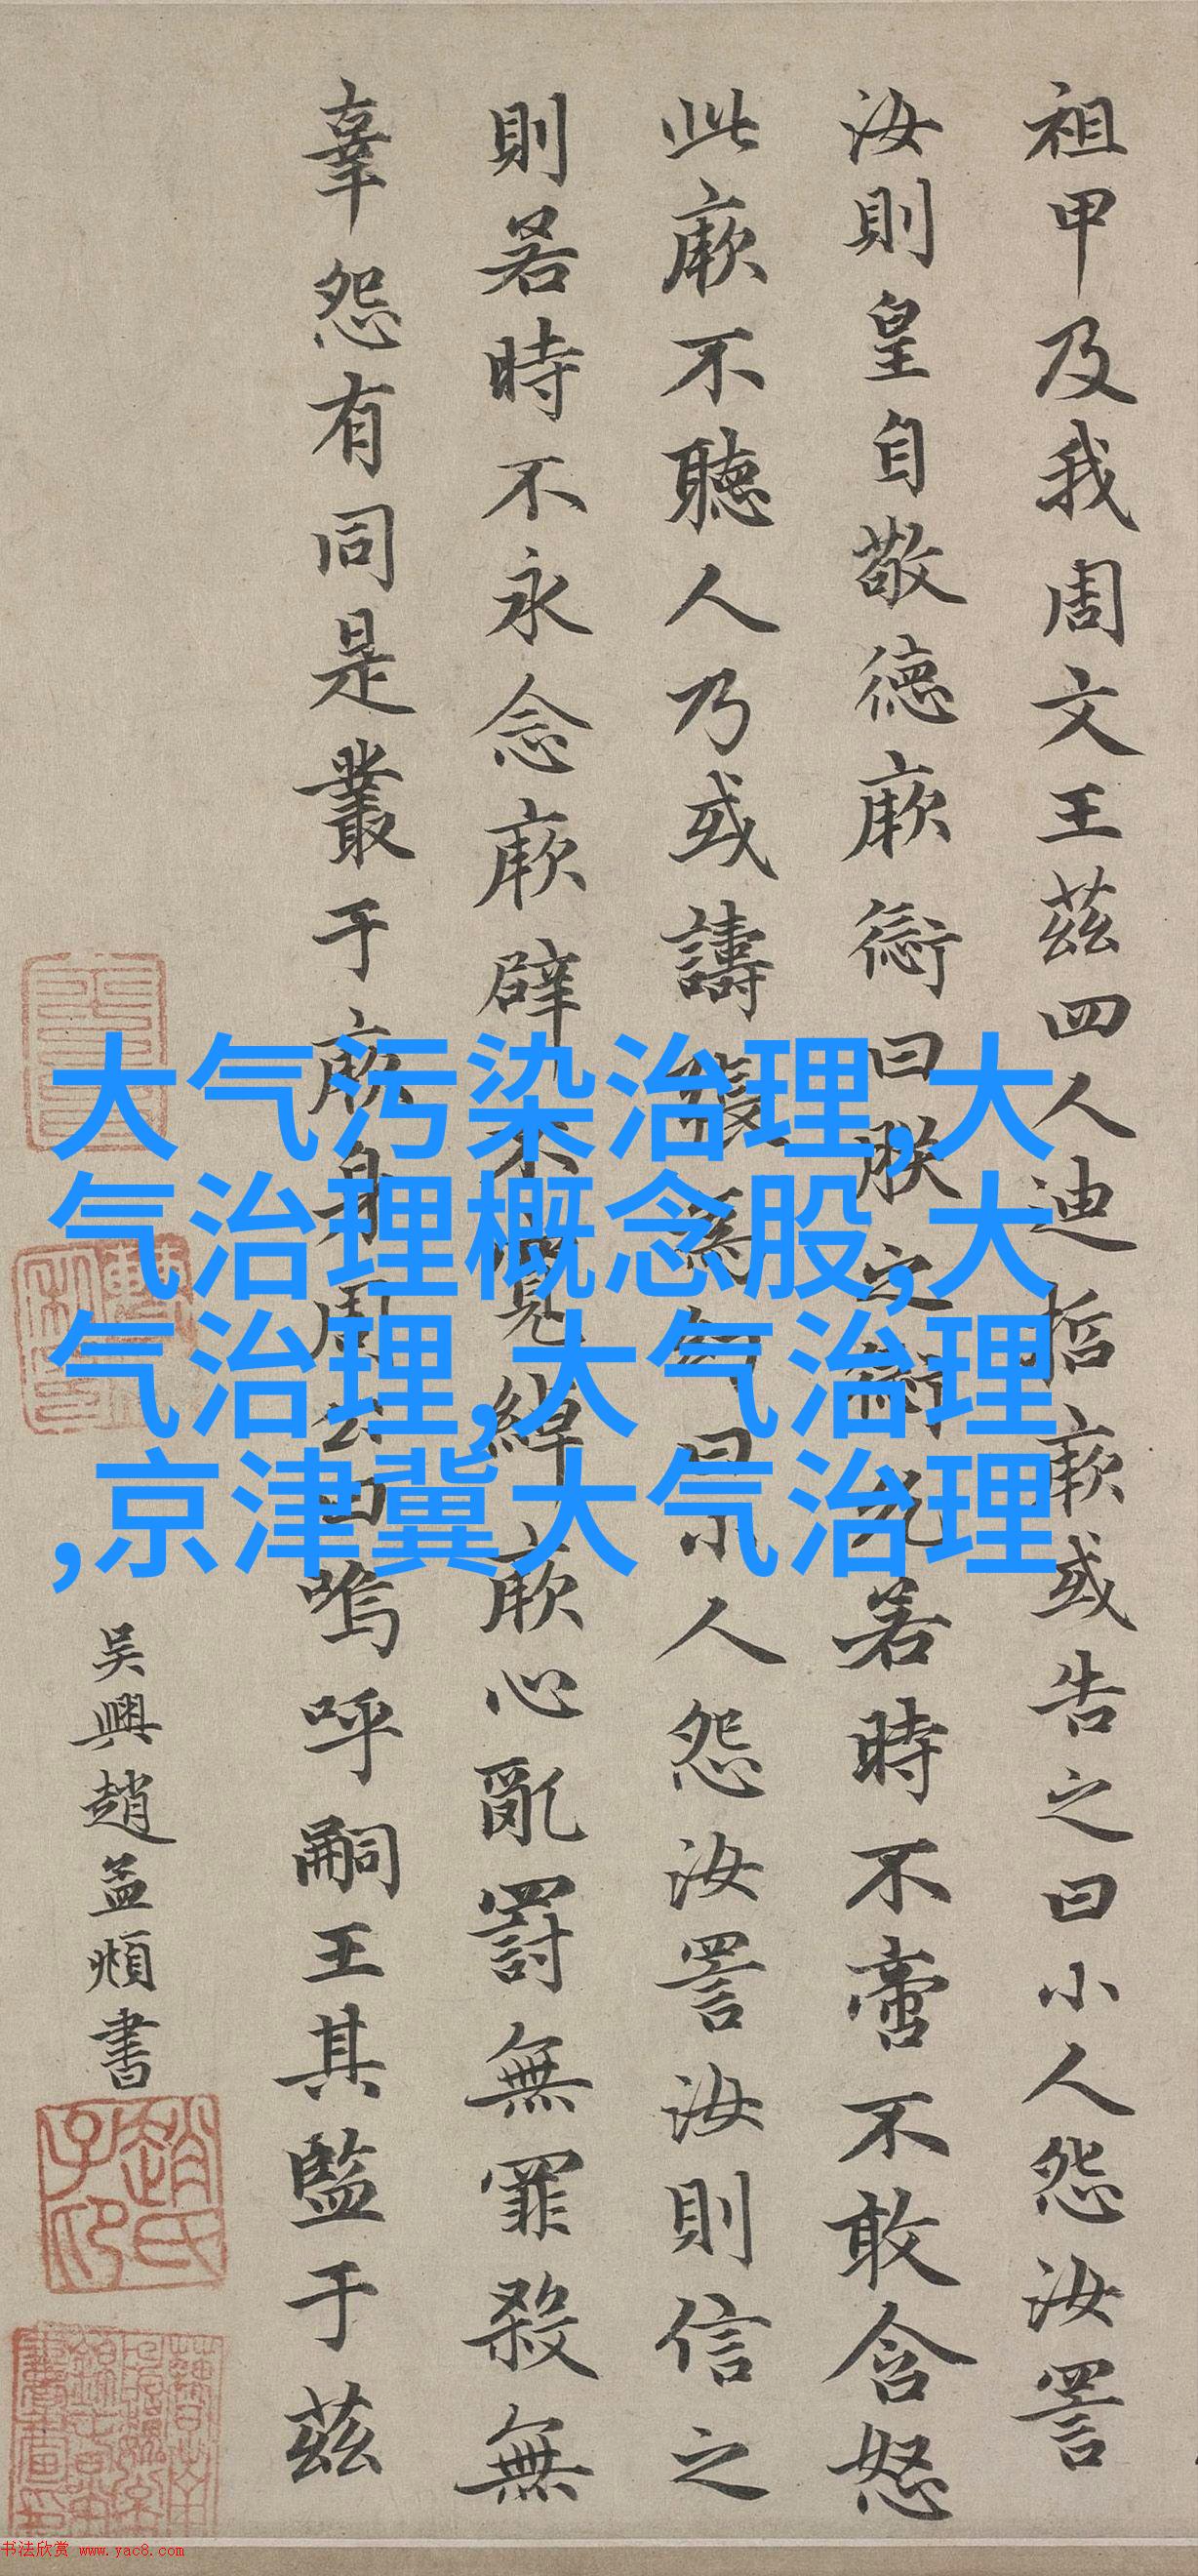 祖甲及我周文王茲四人迪哲厥或告之曰小人怨汝詈
汝則皇自敬德厥愆曰朕之愆允若時不啻不敢含怒
此厥不聽人乃或譸張爲幻曰小人怨汝詈汝則信之
則若時不永念厥辟不寬綽厥心亂罰無罪殺無
辜怨有同是叢于厥身周公曰嗚呼嗣王其監于茲
吴興趙孟頫書
趙氏子昂
大气污染治理,大
气治理概念股,大
气治理,大气治理
,京津冀大气治理
书法欣赏 www.yac8.com